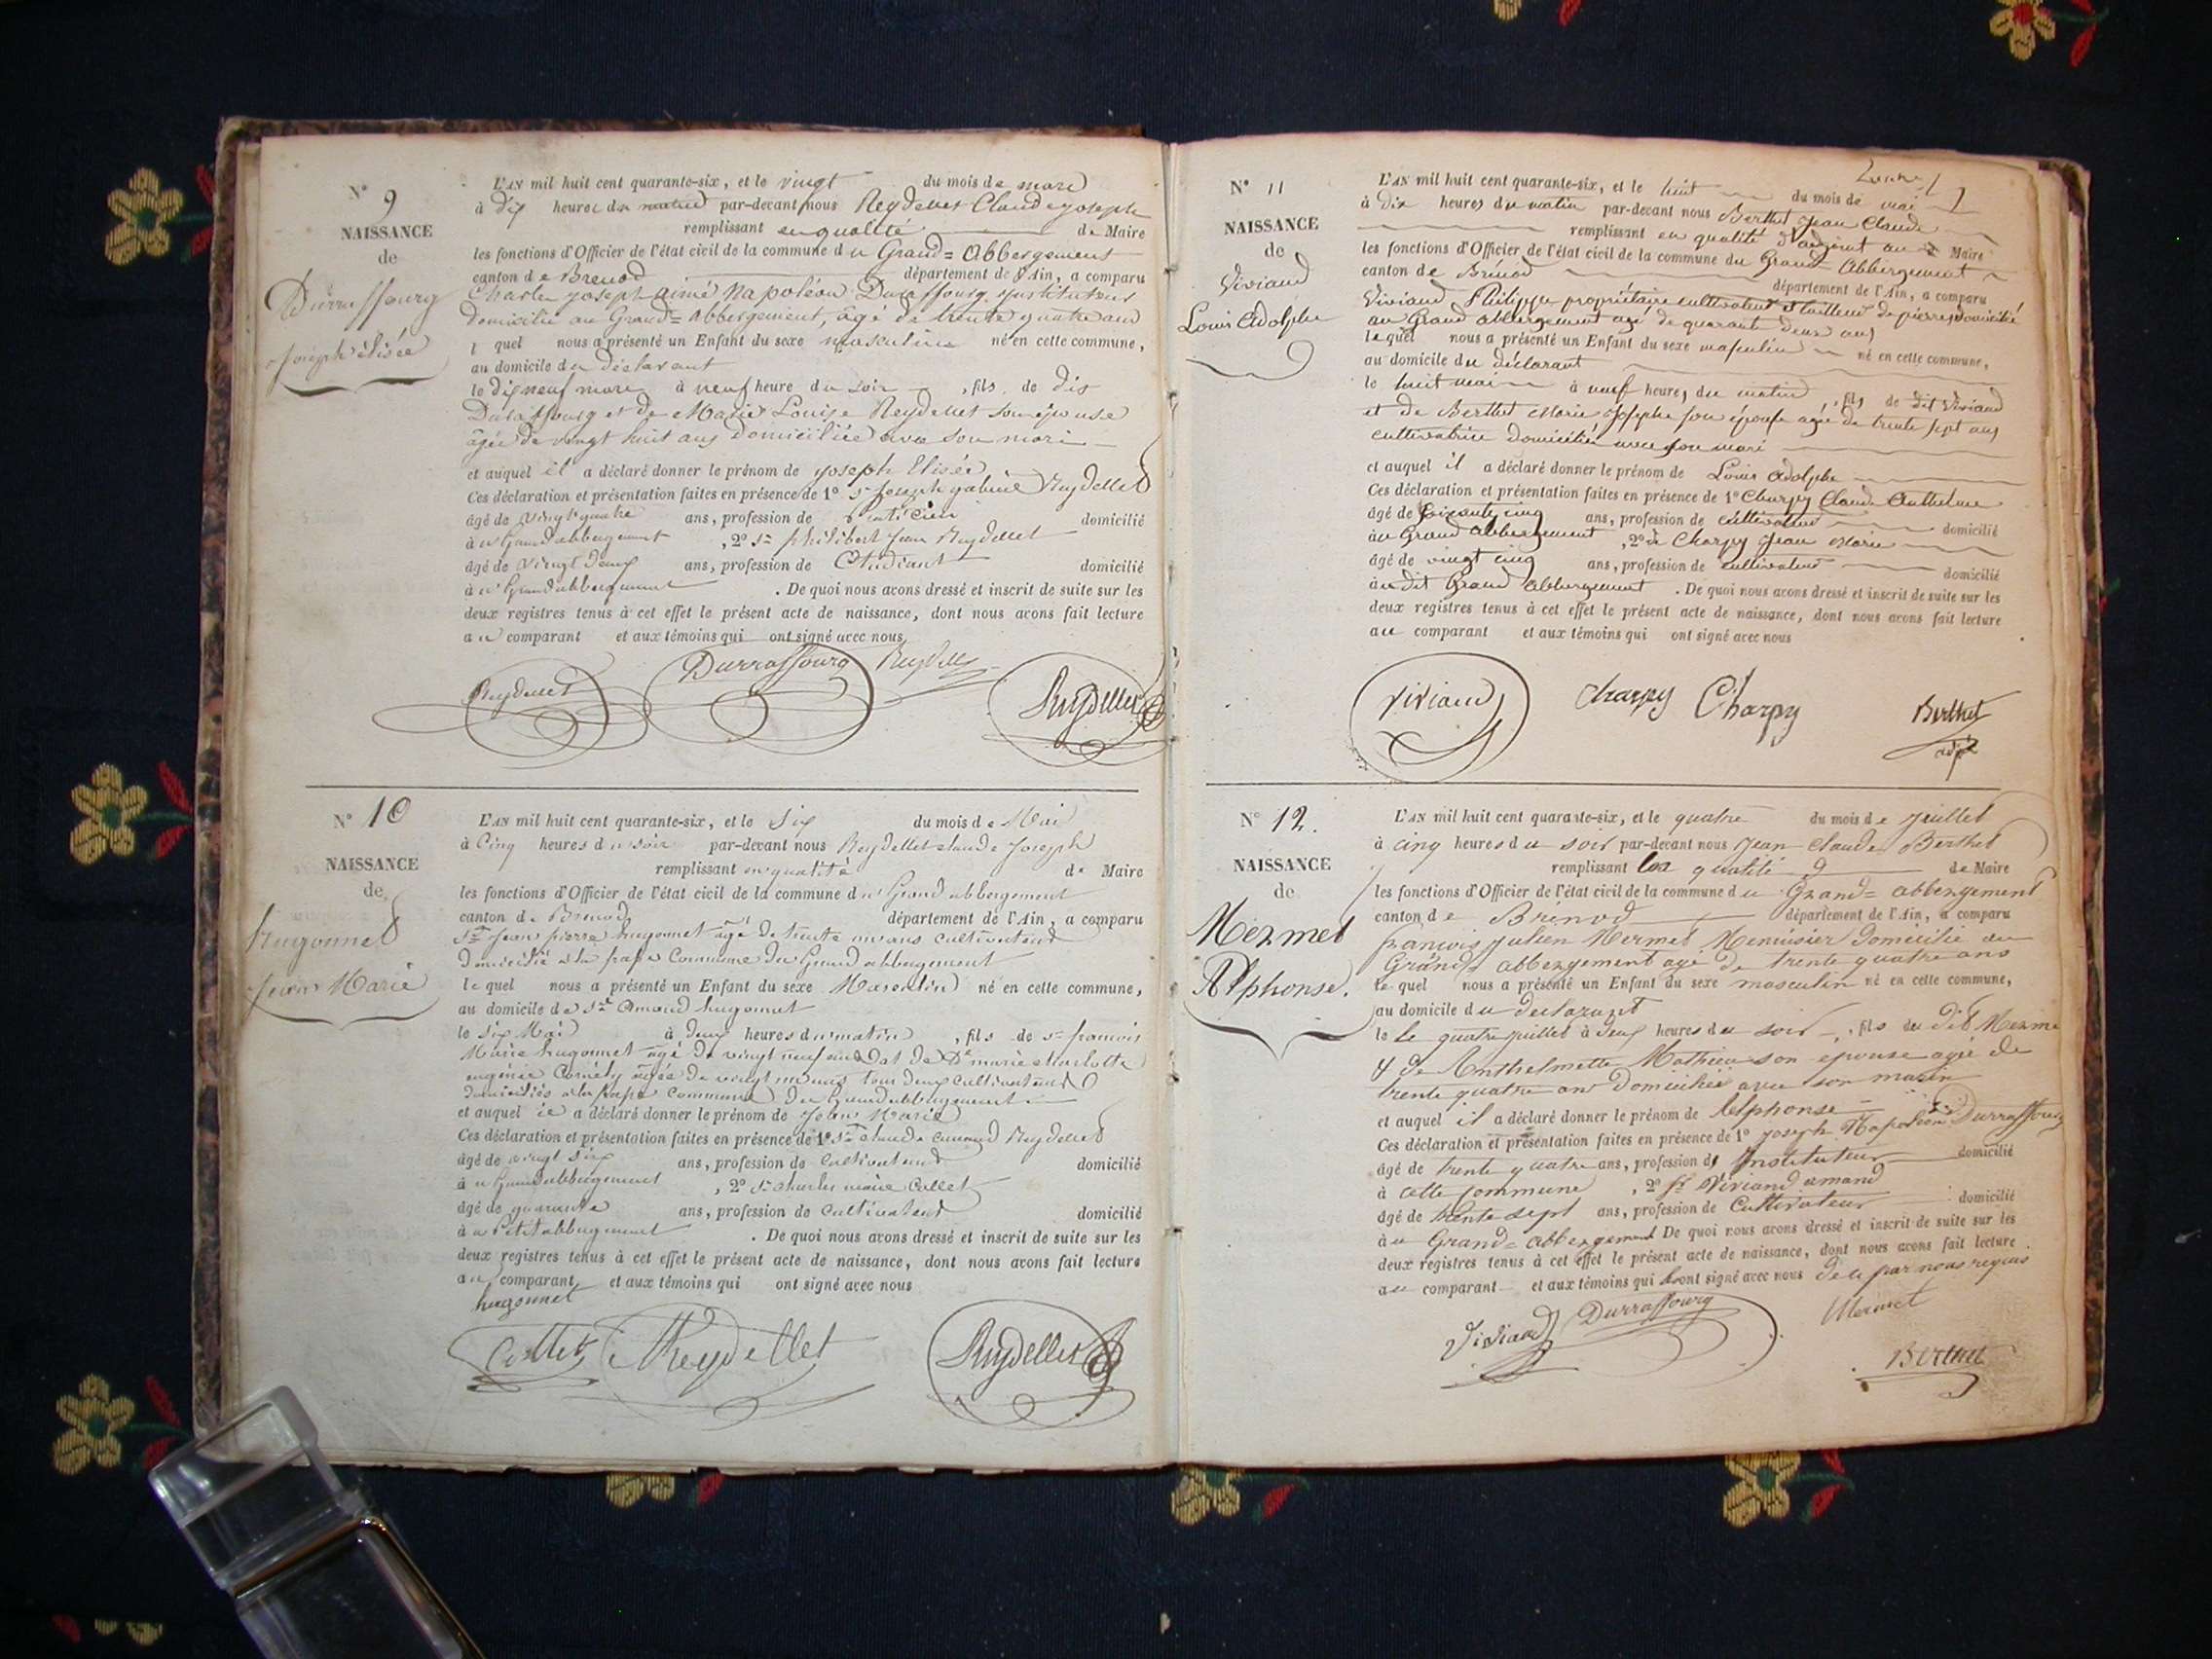 N° 9
NAISSANCE
de
Durraffourg
Joseph élisée
L'AN mil huit cent quarante-six, et le vingt du mois de mars
à dix heures du matin par-devant nous Reydellet Claude joseph
remplissant en qualité de Maire
les fonctions d'Officier de l'état civil de la commune du Grand=Abbergement
canton de Brenod département de l'Ain, a comparu
Charles joseph aimé Napoléon Duraffourg, instituteur
domicilié au Grand=Abbergement, âgé de trente quatre ans
l quel nous a présenté un Enfant du sexe masculin né en cette commune,
au domicile du déclarant
le dix neuf mars à neuf heure du soir, fils de dis
Duraffourg et de Marie Louise Reydellet son épouse
âgée de vingt huit ans domiciliée avec son mari
et auquel il a déclaré donner le prénom de joseph Elisée
Ces déclaration et présentation faites en présence de 1° sr Joseph gabriel Reydellet
âgé de vingt quatre ans, profession de praticien domicilié
au Grand abbergement, 2° sr philibert jean Reydellet
âgé de vingt deux ans, profession de Etudiant domicilié
au Grand abbergement. De quoi nous avons dressé et inscrit de suite sur les
deux registres tenus à cet effet le présent acte de naissance, dont nous avons fait lecture
au comparant et aux témoins qui ont signé avec nous
Reydellet Durraffourg Reydellet
Reydellet
N° 10
NAISSANCE
de
hugonnet
Jean Marie
L'AN mil huit cent quarante-six, et le six du mois de Mai
à Cinq heures du soir par-devant nous Reydellet claude Joseph
remplissant en qualité de Maire
les fonctions d'Officier de l'état civil de la commune du Grand abbergement
canton de Brenod département de l'Ain, a comparu
Sr Jean pierre hugonnet âgé de trente ans cultivateur
domicilié à la Commune du Grand abbergement
le quel nous a présenté un Enfant du sexe Masculin né en cette commune,
au domicile de sr Amand hugonnet
le six Mai à deux heures du matin, fils de sr francois
Marie hugonnet âgé de vingt neuf ans de De marie charlotte
eugénie âgée de vingt ans tous deux cultivateurs
domiciliés à la commune du Grand abbergement
et auquel il a déclaré donner le prénom de Jean Marie
Ces déclaration et présentation faites en présence de 1° sr claude Reydellet
âgé de vingt six ans, profession de cultivateur domicilié
au Grand abbergement, 2° sr charles marie Collet
âgé de quarante ans, profession de cultivateur domicilié
au Petit abbergement. De quoi nous avons dressé et inscrit de suite sur les
deux registres tenus à cet effet le présent acte de naissance, dont nous avons fait lecture
au comparant et aux témoins qui ont signé avec nous
hugonnet
Collet Reydellet Reydellet
N° 11
NAISSANCE
de
Viviand
Louis Adolphe
L'AN mil huit cent quarante-six, et le huit du mois de mai
à dix heures du matin par-devant nous Berthet Jean Claude
remplissant en qualité d'adjoint au Maire
les fonctions d'Officier de l'état civil de la commune du Grand Abbergement
canton de Brénod département de l'Ain, a comparu
Viviand Philippe propriétaire cultivateur & tailleur de pierres domicilié
au Grand abbergement agé de quarante deux ans
lequel nous a présenté un Enfant du sexe masculin né en cette commune,
au domicile du déclarant
le huit mai à neuf heures du matin, fils de dit Viviand
et de Berthet Marie Josephe son épouse agée de trente sept ans
cultivatrice domiciliée avec son mari
et auquel il a déclaré donner le prénom de Louis Adolphe
Ces déclaration et présentation faites en présence de 1° Charpy Claude Anthelme
âgé de soixante cinq ans, profession de cultivateur domicilié
au Grand Abbergement, 2° de Charpy Jean Marie
âgé de vingt cinq ans, profession de cultivateur domicilié
au dit Grand Abbergement. De quoi nous avons dressé et inscrit de suite sur les
deux registres tenus à cet effet le présent acte de naissance, dont nous avons fait lecture
au comparant et aux témoins qui ont signé avec nous
Viviand Charpy Charpy Berthet
adjt
N° 12.
NAISSANCE
de
Mermet
Alphonse.
L'AN mil huit cent quarante-six, et le quatre du mois de juillet
à cinq heures du soir par-devant nous Jean Claude Berthet
remplissant qualité de Maire
les fonctions d'Officier de l'état civil de la commune du Grand=abbergement
canton de Brénod département de l'Ain, a comparu
françois julien Mermet Menuisier domicilié au
Grand abbergement agé de trente quatre ans
le quel nous a présenté un Enfant du sexe masculin né en cette commune,
au domicile du declarant
le le quatre juillet à deux heures du soir, fils du dit Mermet
& de Anthelmette Mathieu son epouse agée de
trente quatre ans domiciliée avec son mari
et auquel il a déclaré donner le prénom de Alphonse
Ces déclaration et présentation faites en présence de 1° joseph Napoléon Durraffourg
âgé de trente quatre ans, profession d' Instituteur domicilié
à cette commune, 2° sr Viviand amand
âgé de trente sept ans, profession de Cultivateur domicilié
au Grand=abbergement De quoi nous avons dressé et inscrit de suite sur les
deux registres tenus à cet effet le présent acte de naissance, dont nous avons fait lecture
au comparant et aux témoins qui ont signé avec nous de ce par nous requis
Viviand Durraffourg Mermet
Berthet